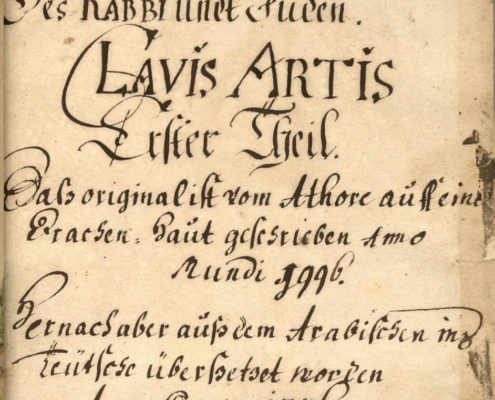 Des RABBI und Juden.
CLAVIS ARTIS
Erster Theil.
Daß original ist vom Athore auff eine
Drachen-haut geschrieben Anno
Mundi 1996.
Hernach aber auß dem Arabischen ins
Teütsche übersetzet worden